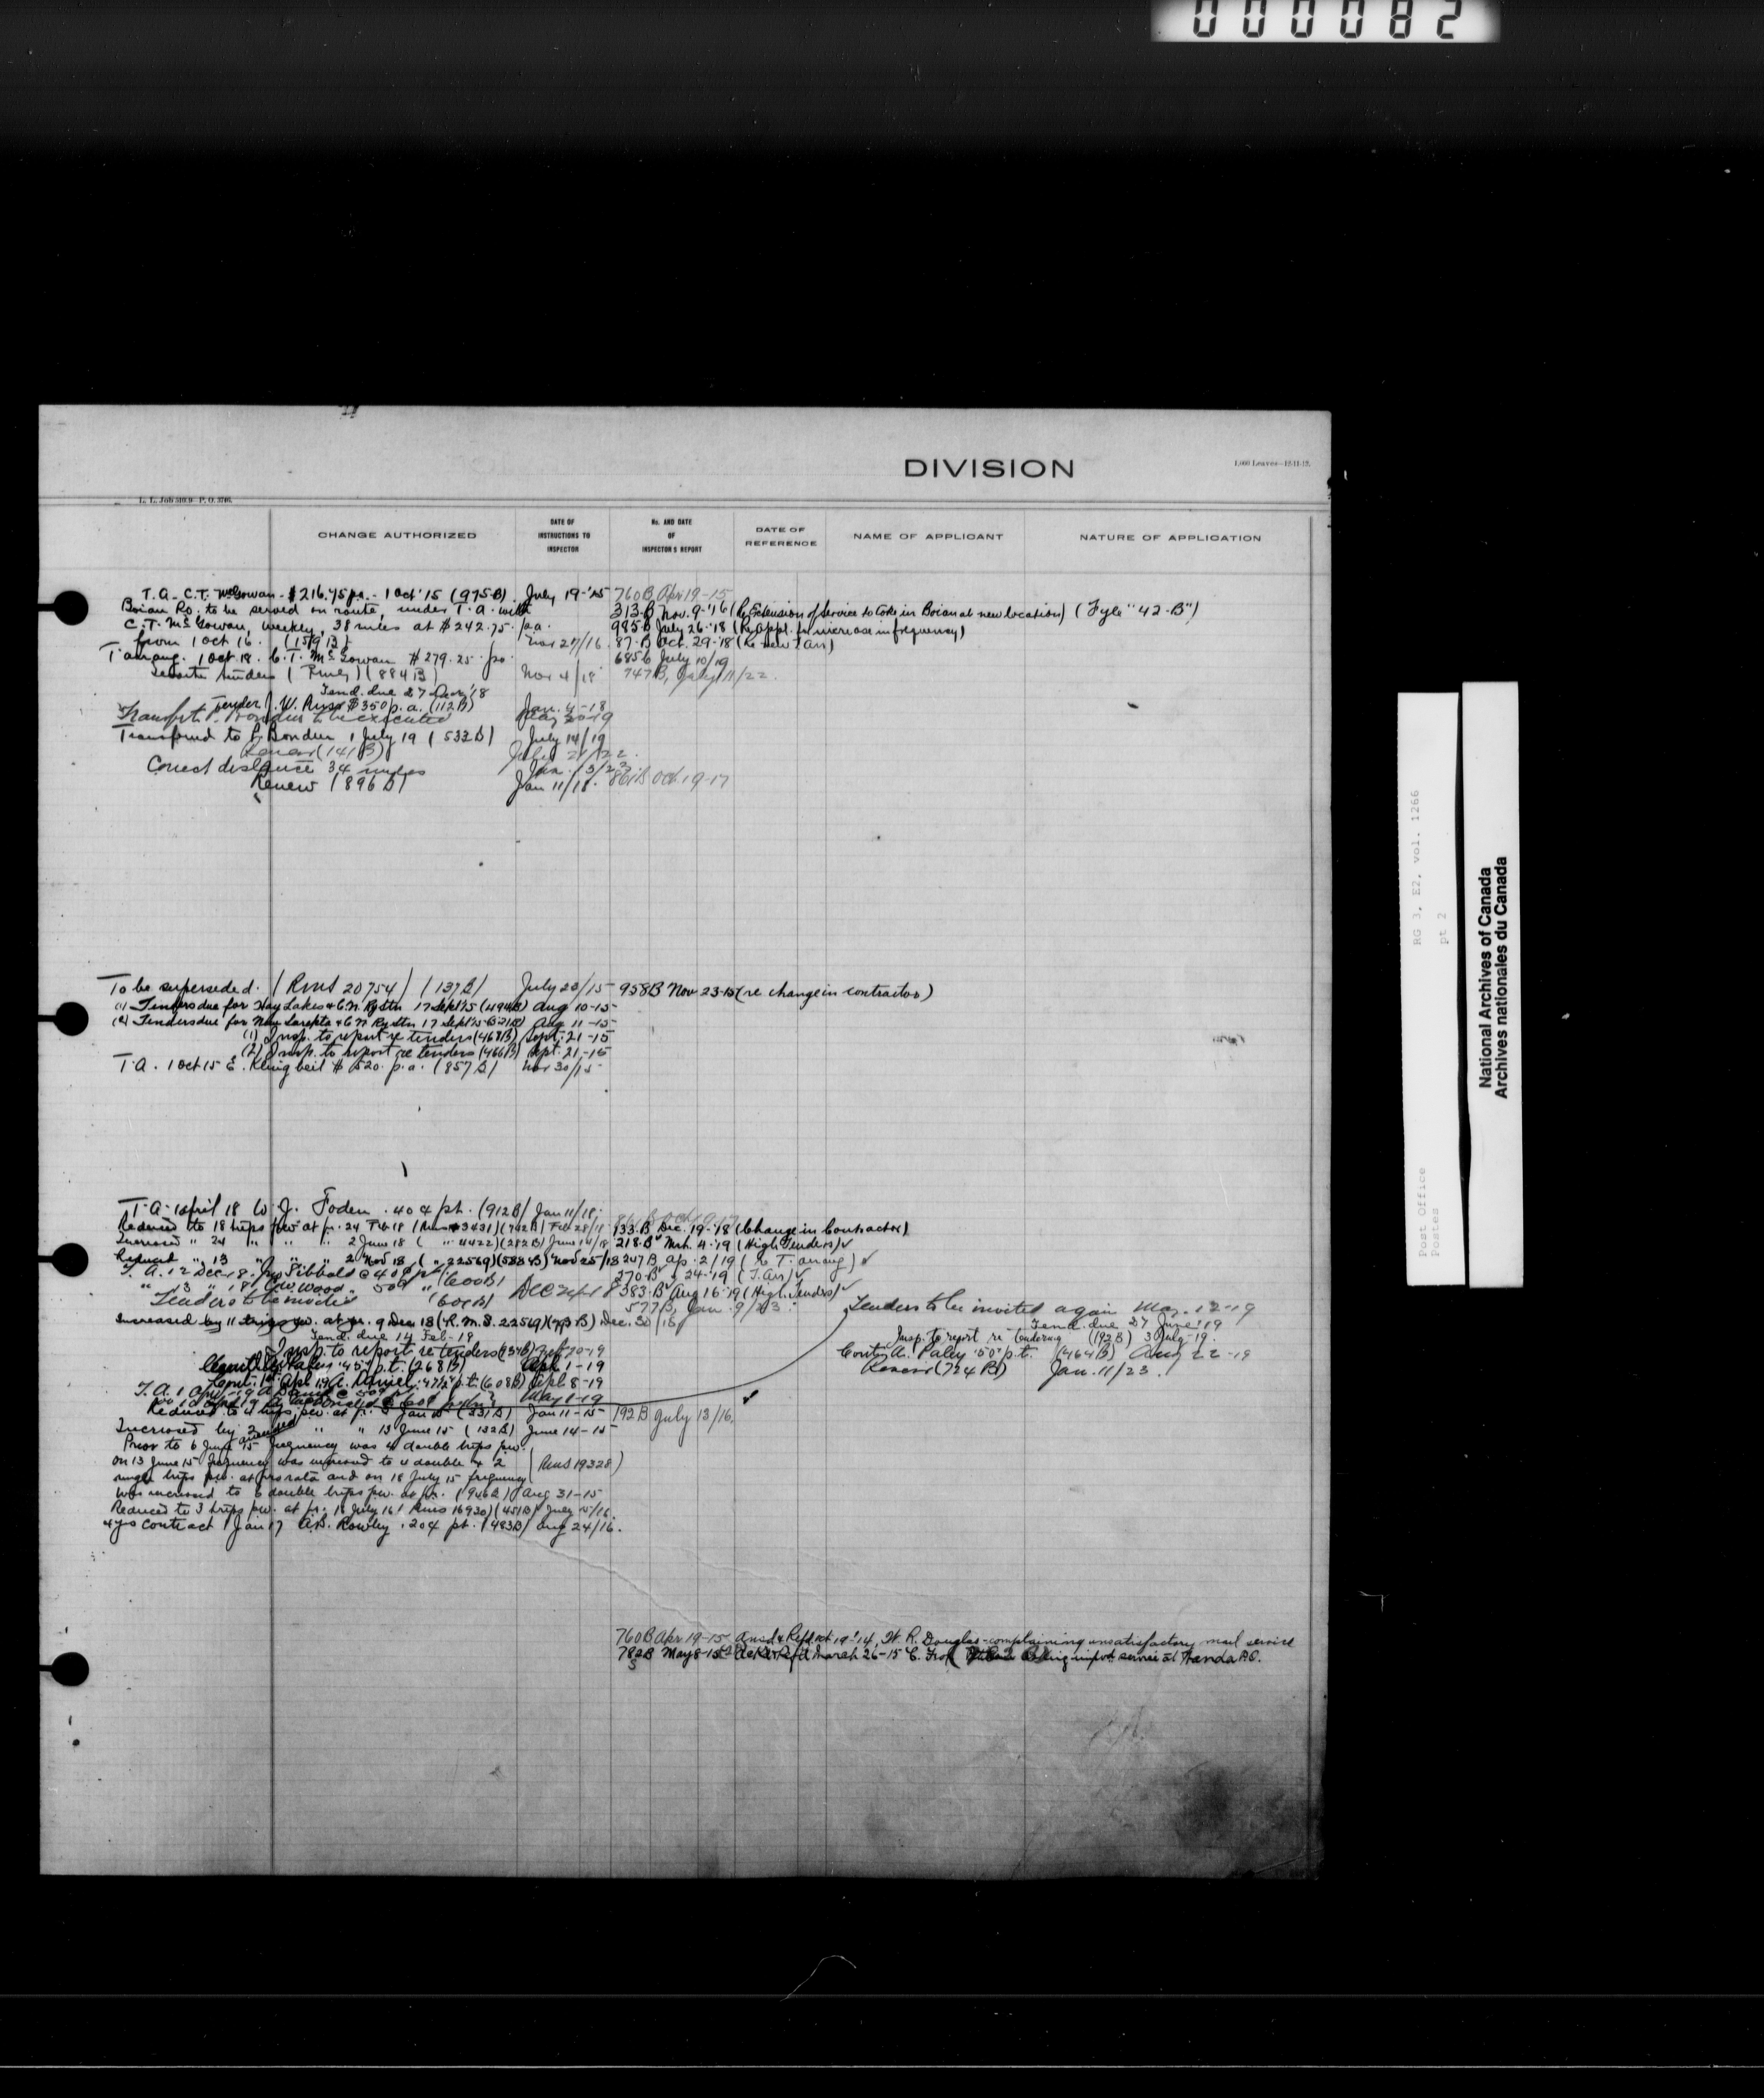 000082
DIVISION
1,000 Leaves-12-11-12.
L. L. Job P. O. 3766.
CHANGE AUTHORIZED
DATE OF INSTRUCTIONS TO INSPECTOR
No. AND DATE OF INSPECTOR'S REPORT
DATE OF REFERENCE
NAME OF APPLICANT
NATURE OF APPLICATION
T.A. C.T. McGowan $216.75 pa. 1 Oct '15 (975-B) July 19-'15 760B Apr 19-15
Boian P.O. to be served on route, under T.A. with 313-B Nov. 9-'16 (Re Extension of Service to Boian at new location) (Fyle "42-B")
C.T. McGowan, weekly, 38 miles at $242.75 pa. 985-B July 26-'18 (Re appl. for increase in frequency)
from 1 Oct 16. Nov 27/16 87-B Oct. 29-'18 (Re new T arr)
T arrang. 1 Oct 18. C.T. McGowan $279.25 pa. 685B July 10/19
tenders (884B) Nov 4/18 747B, July 11/22
Tend. due 27
Tender J. W. Russ $350 p.a. (112B) Jan. 4-18
Transfer to Bonden to be executed May 20-19
Transferred to P. Bonden 1 July 19 (533B) July 14/19
Renew (141B) July 21/22
Correct distance 34 miles Jan. 13/23
Renew (896B) Jan 11/18. 861B Oct 19-17
To be superseded. (RMS 20754) (137B) July 20/15 958B Nov 23-15 (re change in contractor)
(1) Tenders due for Hay Lakes & C.N. Ry Stn 17 Sept '15 (494B) Aug 10-15
(2) Tenders due for New Sarepta & C N Ry Stn 17 Sept '15 Aug 11-15
(1) Insp. to report re tenders (468B) Sept. 21-15
(2) Insp. to report re tenders (466B) Sept. 21-15
T.A. 1 Oct 15 E. Klingbeil $520. p.a. (857B) Nov 30/15
T.A. 1 April 18 W. J. Foden .40¢ pt. (912B) Jan 11/18
Reduced to 18 trips pw. at pr. 24 Feb 18 (742B) Feb 28/18 133-B Dec. 19-'18 (Change in Contractor)
Increased " 24 " " " 2 June 18 ( " 4422) (282B) June 14/18 218-B Mch. 4-'19 (High Tenders) ✓
" 13 " " " 2 Nov 18 ( " 22569) (588B) Nov 25/18 247B Ap. 2/19 (re T. arrang) ✓
T.A. 12 Dec 18. Jno Tibbald @ 40¢ pt (600B) 270-B " 24-'19 (T. Arr) ✓
" 13 " 18 Wood " 50¢ " (601B) 383-B Aug 16-'19 (High Tenders) ✓
Tenders to be invited 577B, Jan. 9/23
Increased by 11 trips pw. at pr. 9 Dec 18 (R.M.S. 22569) Dec. 30/18
Tenders to be invited again Mar. 12-19
Tend. due 14 Feb-19
Tend. due 27 June '19
Insp. to report re tenders Feb 20-19
Insp. to report re tendering (192B) 3 July-19.
p.t. (268B) Apl 1-19
Contr. A. Paley '50" p.t. (464B) Aug 22-19
Apl 19 A. Daniel .47½ p.t. (608B) Apl 8-19
Renew (724B) Jan. 11/23.
T.A. 1 Apr 19 May 1-19
Reduced to 4 trips pw. at pr. 3 Jan 15 (331B) Jan 11-15 192B July 13/16.
Increased by 2 " " 13 June 15 (132B) June 14-15
Prior to 6 June 15 frequency was 4 double trips pw.
On 13 June 15 frequency was increased to 4 double & 2 (RMS 19328)
single trips pw. at pro rata and on 18 July 15 frequency
was increased to 6 double trips pw. at pr. (946B) Aug 31-15
Reduced to 3 trips pw. at pr. 18 July 16 (RMS 16930) (451B) July 15/16.
4 yrs contract 1 Jan 17 A.B. Rowley .20¢ pt. (483B) Aug 24/16.
760B Apr 19-15 19-'14, W. R. Douglas-complaining unsatisfactory mail service
782B May 8-15 March 26-15 C. service at Handa P.O.
RG 3, E2, vol. 1266
pt 2
Post Office
Postes
National Archives of Canada
Archives nationales du Canada